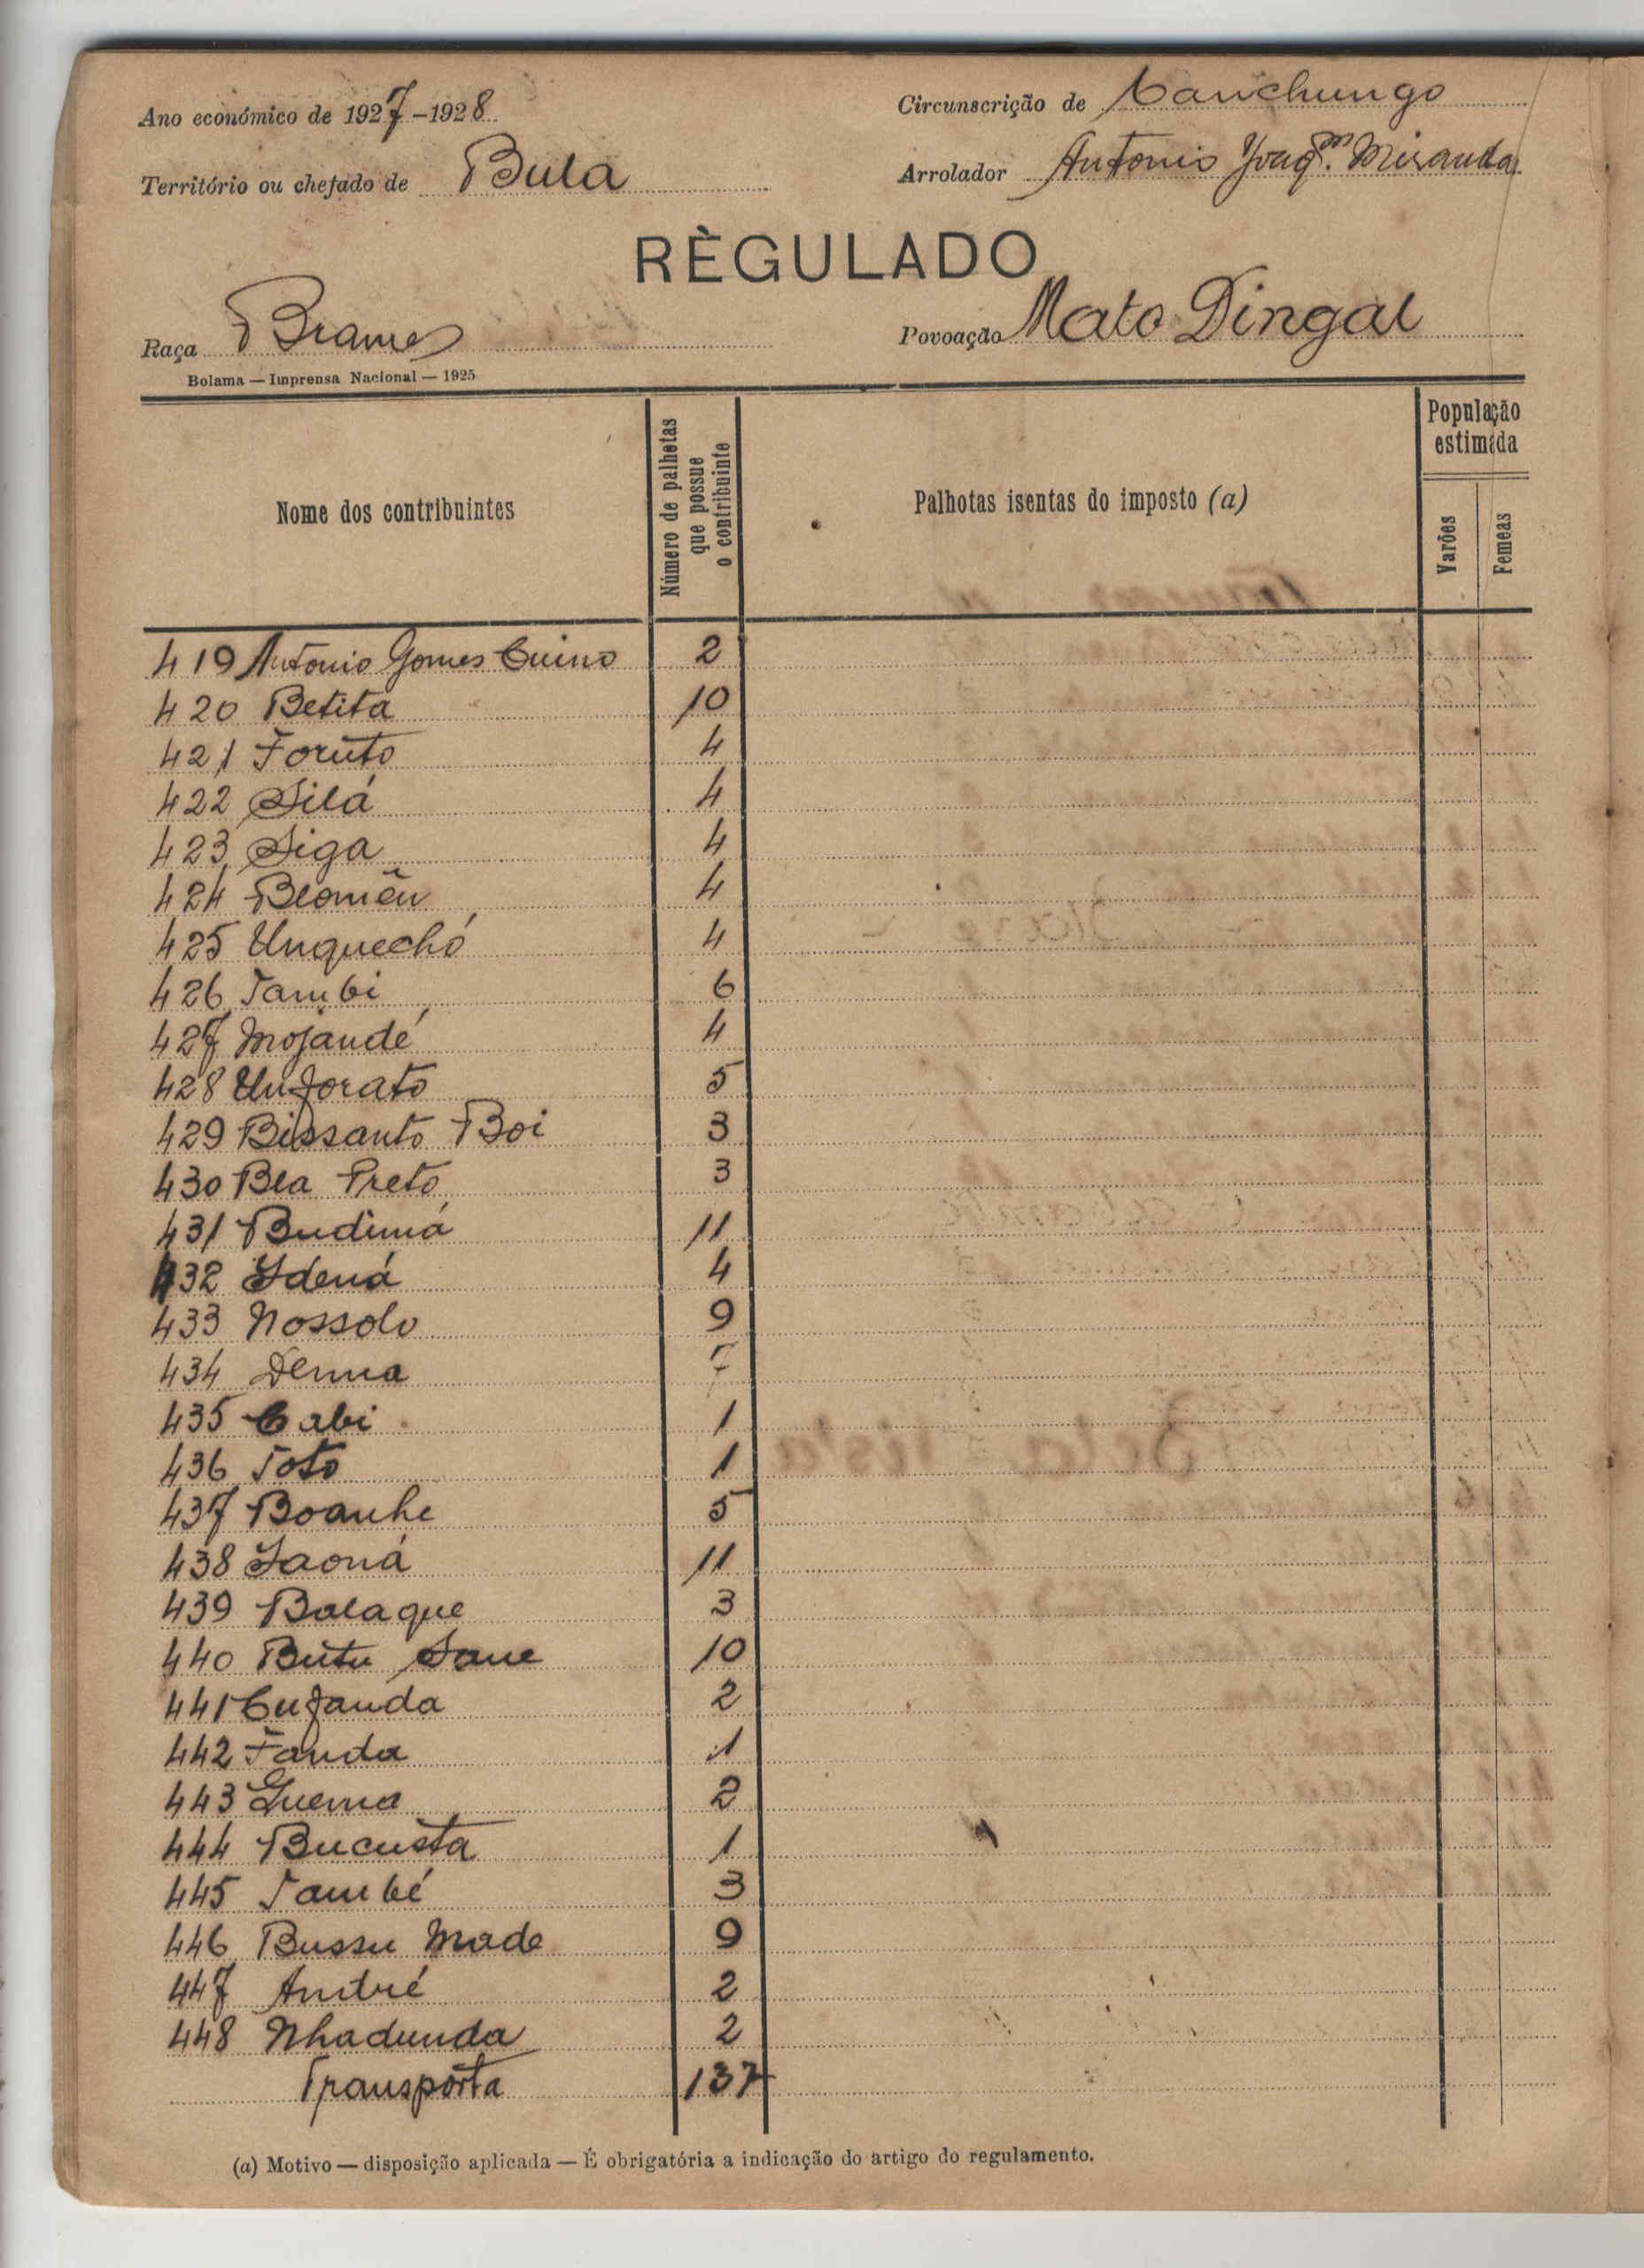 Ano económico de 1927-1928
Circunscrição de Canchungo
Território ou chefado de Bula
Arrolador Antonio Joaqm. Miranda
RÈGULADO
Raça Brames
Povoação Mato Dingal
Bolama — Imprensa Nacional — 1925
Nome dos contribuintes
Número de palhotas que possue o contribuinte
Palhotas isentas do imposto (a)
População estimada
Varões
Femeas
419 Antonio Gomes Cuino 2
420 Betita 10
421 Foruto 4
422 Silá 4
423 Siga 4
424 Blomên 4
425 Unquechó 4
426 Tambi 6
427 Mojandé 4
428 Unforato 5
429 Bissanto Boi 3
430 Bla Preto 3
431 Budimá 11
432 Idená 4
433 Nossolo 9
434 Denna 7
435 Cabi 1
436 Toto 1
437 Boanhe 5
438 Jaoná 11
439 Balaque 3
440 Butu Sane 10
441 Cufanda 2
442 Fanda 1
443 Guema 2
444 Bucusta 1
445 També 3
446 Bussu Made 9
447 André 2
448 Nhadunda 2
Transporta 137
(a) Motivo — disposição aplicada — É obrigatória a indicação do artigo do regulamento.